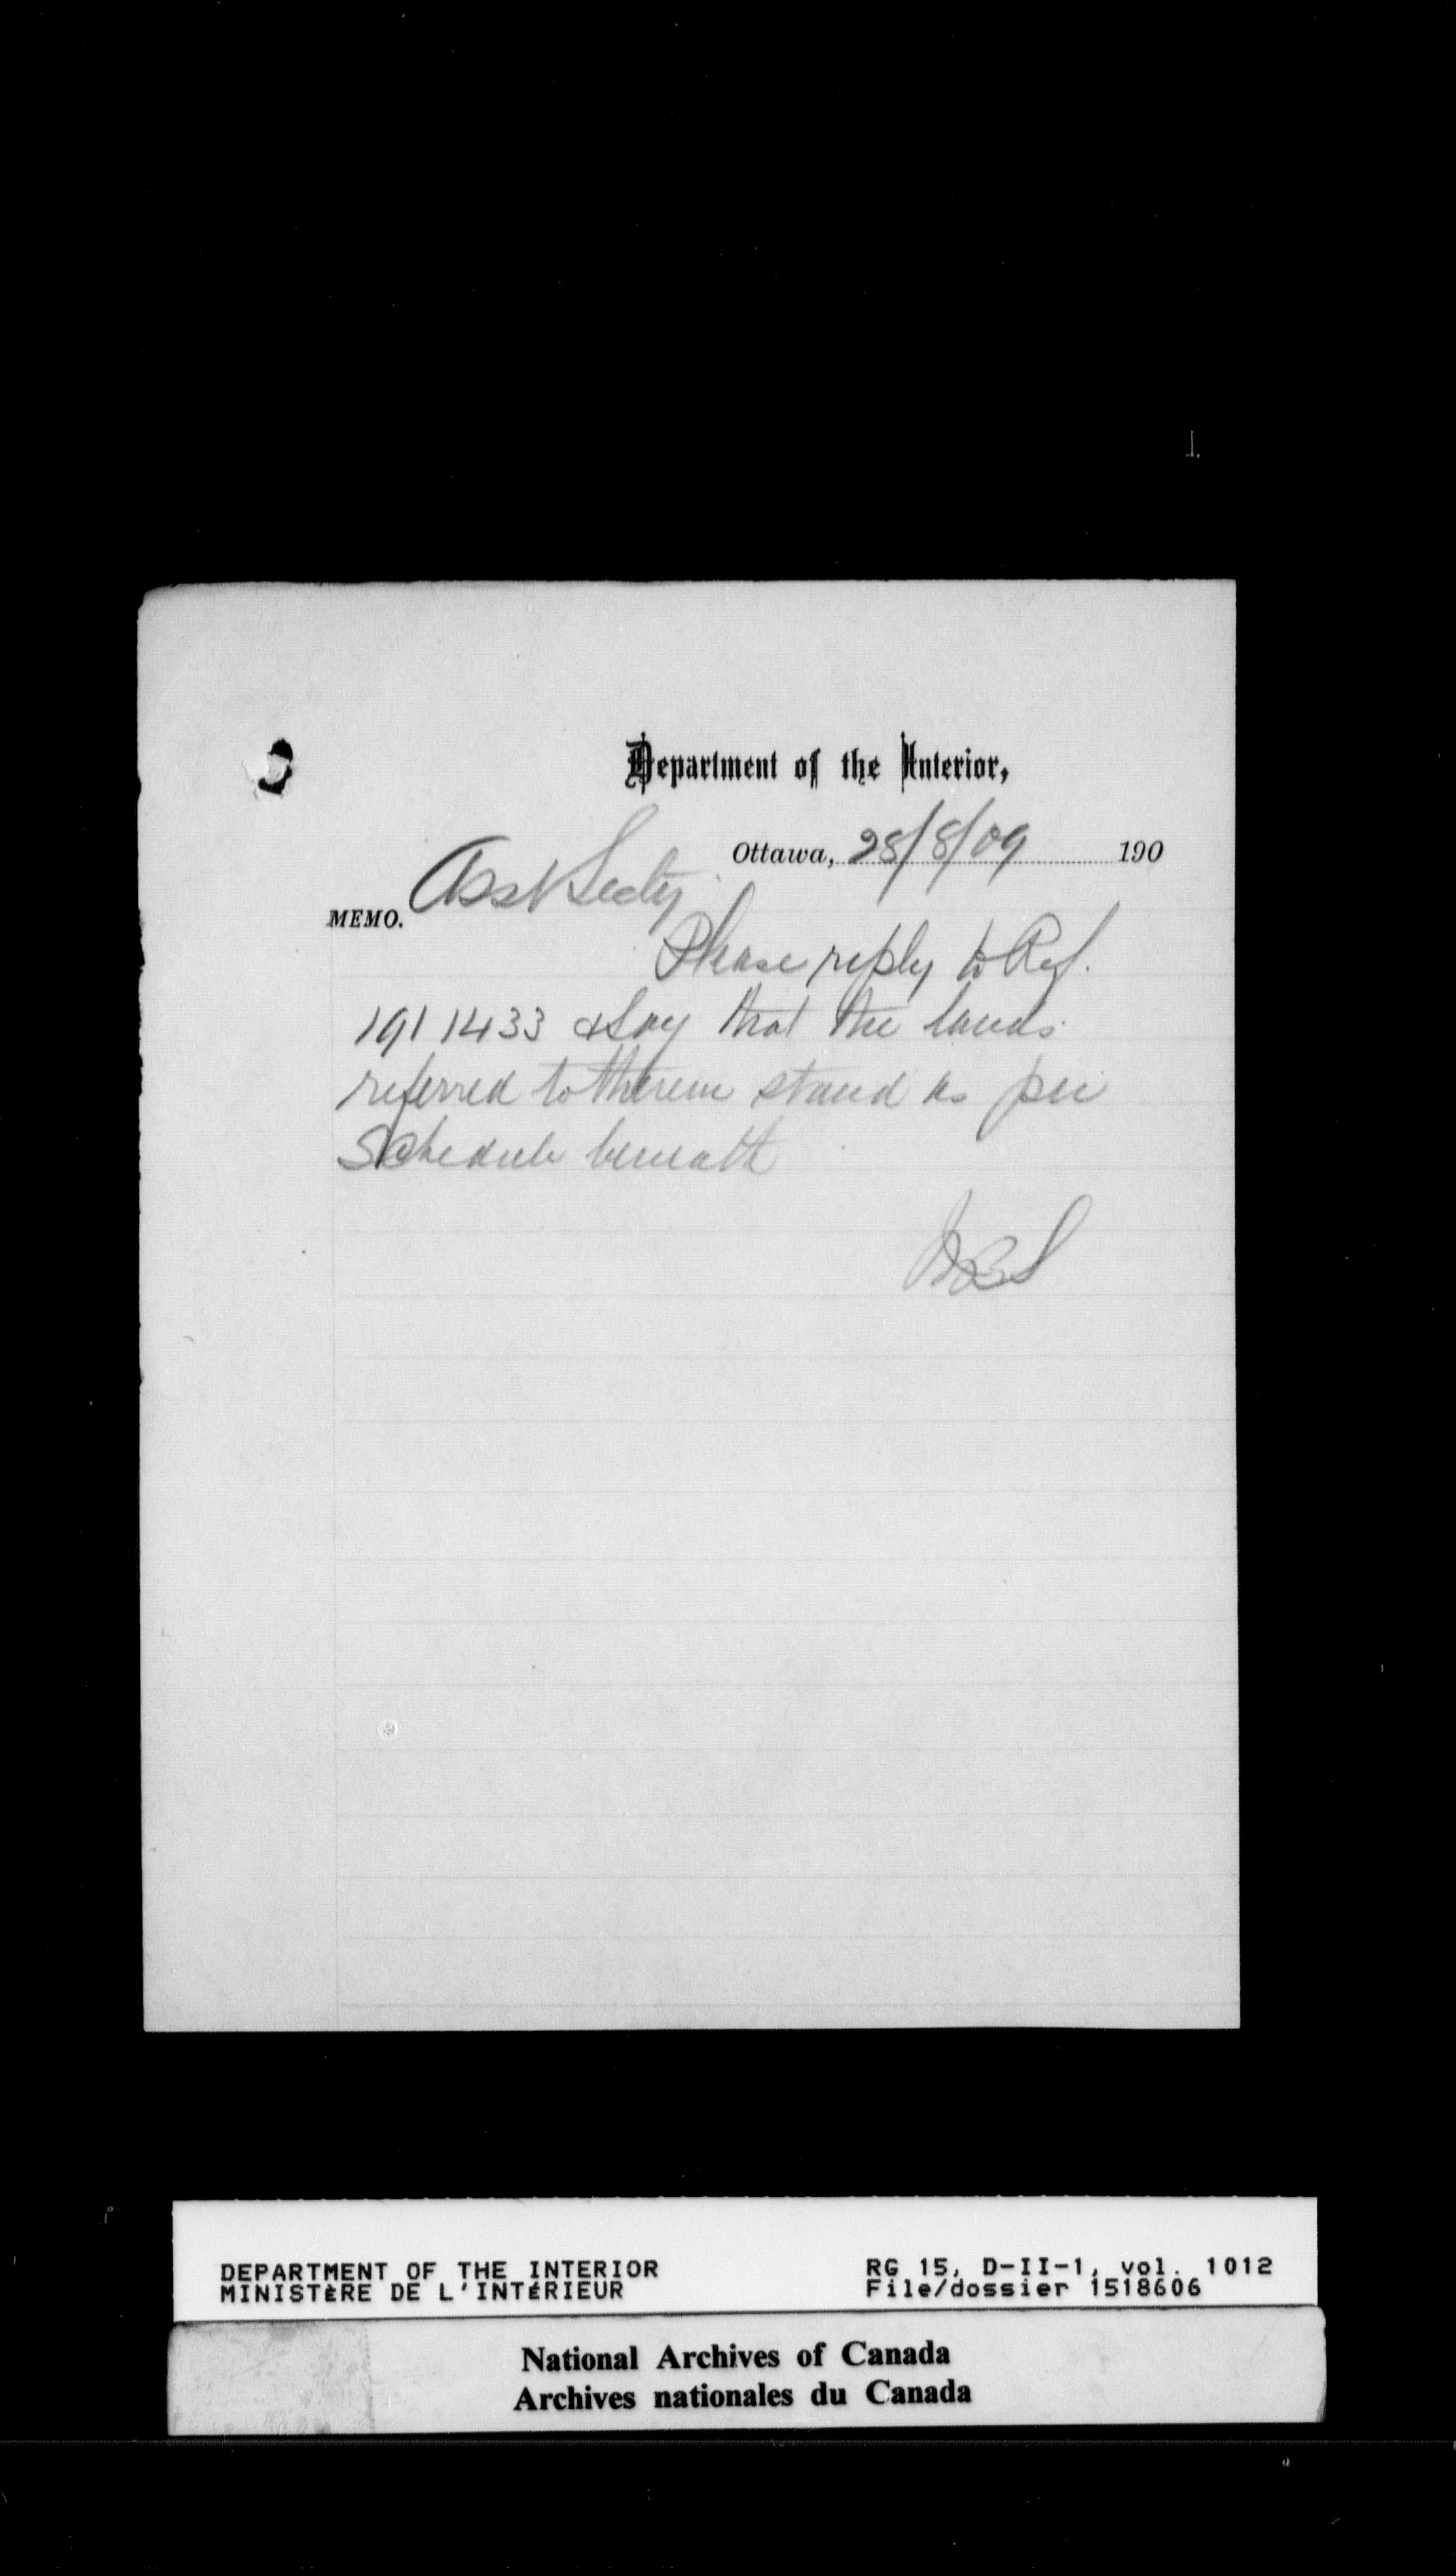 Department of the Interior,
Ottawa, 28/8/09 190
MEMO. Asst Secty
Please reply to Ref.
1911433 & say that the lands
referred to therein stand as per
Schedule beneath
DEPARTMENT OF THE INTERIOR
MINISTÈRE DE L'INTÉRIEUR
RG 15, D-II-1, vol. 1012
File/dossier 1518606
National Archives of Canada
Archives nationales du Canada